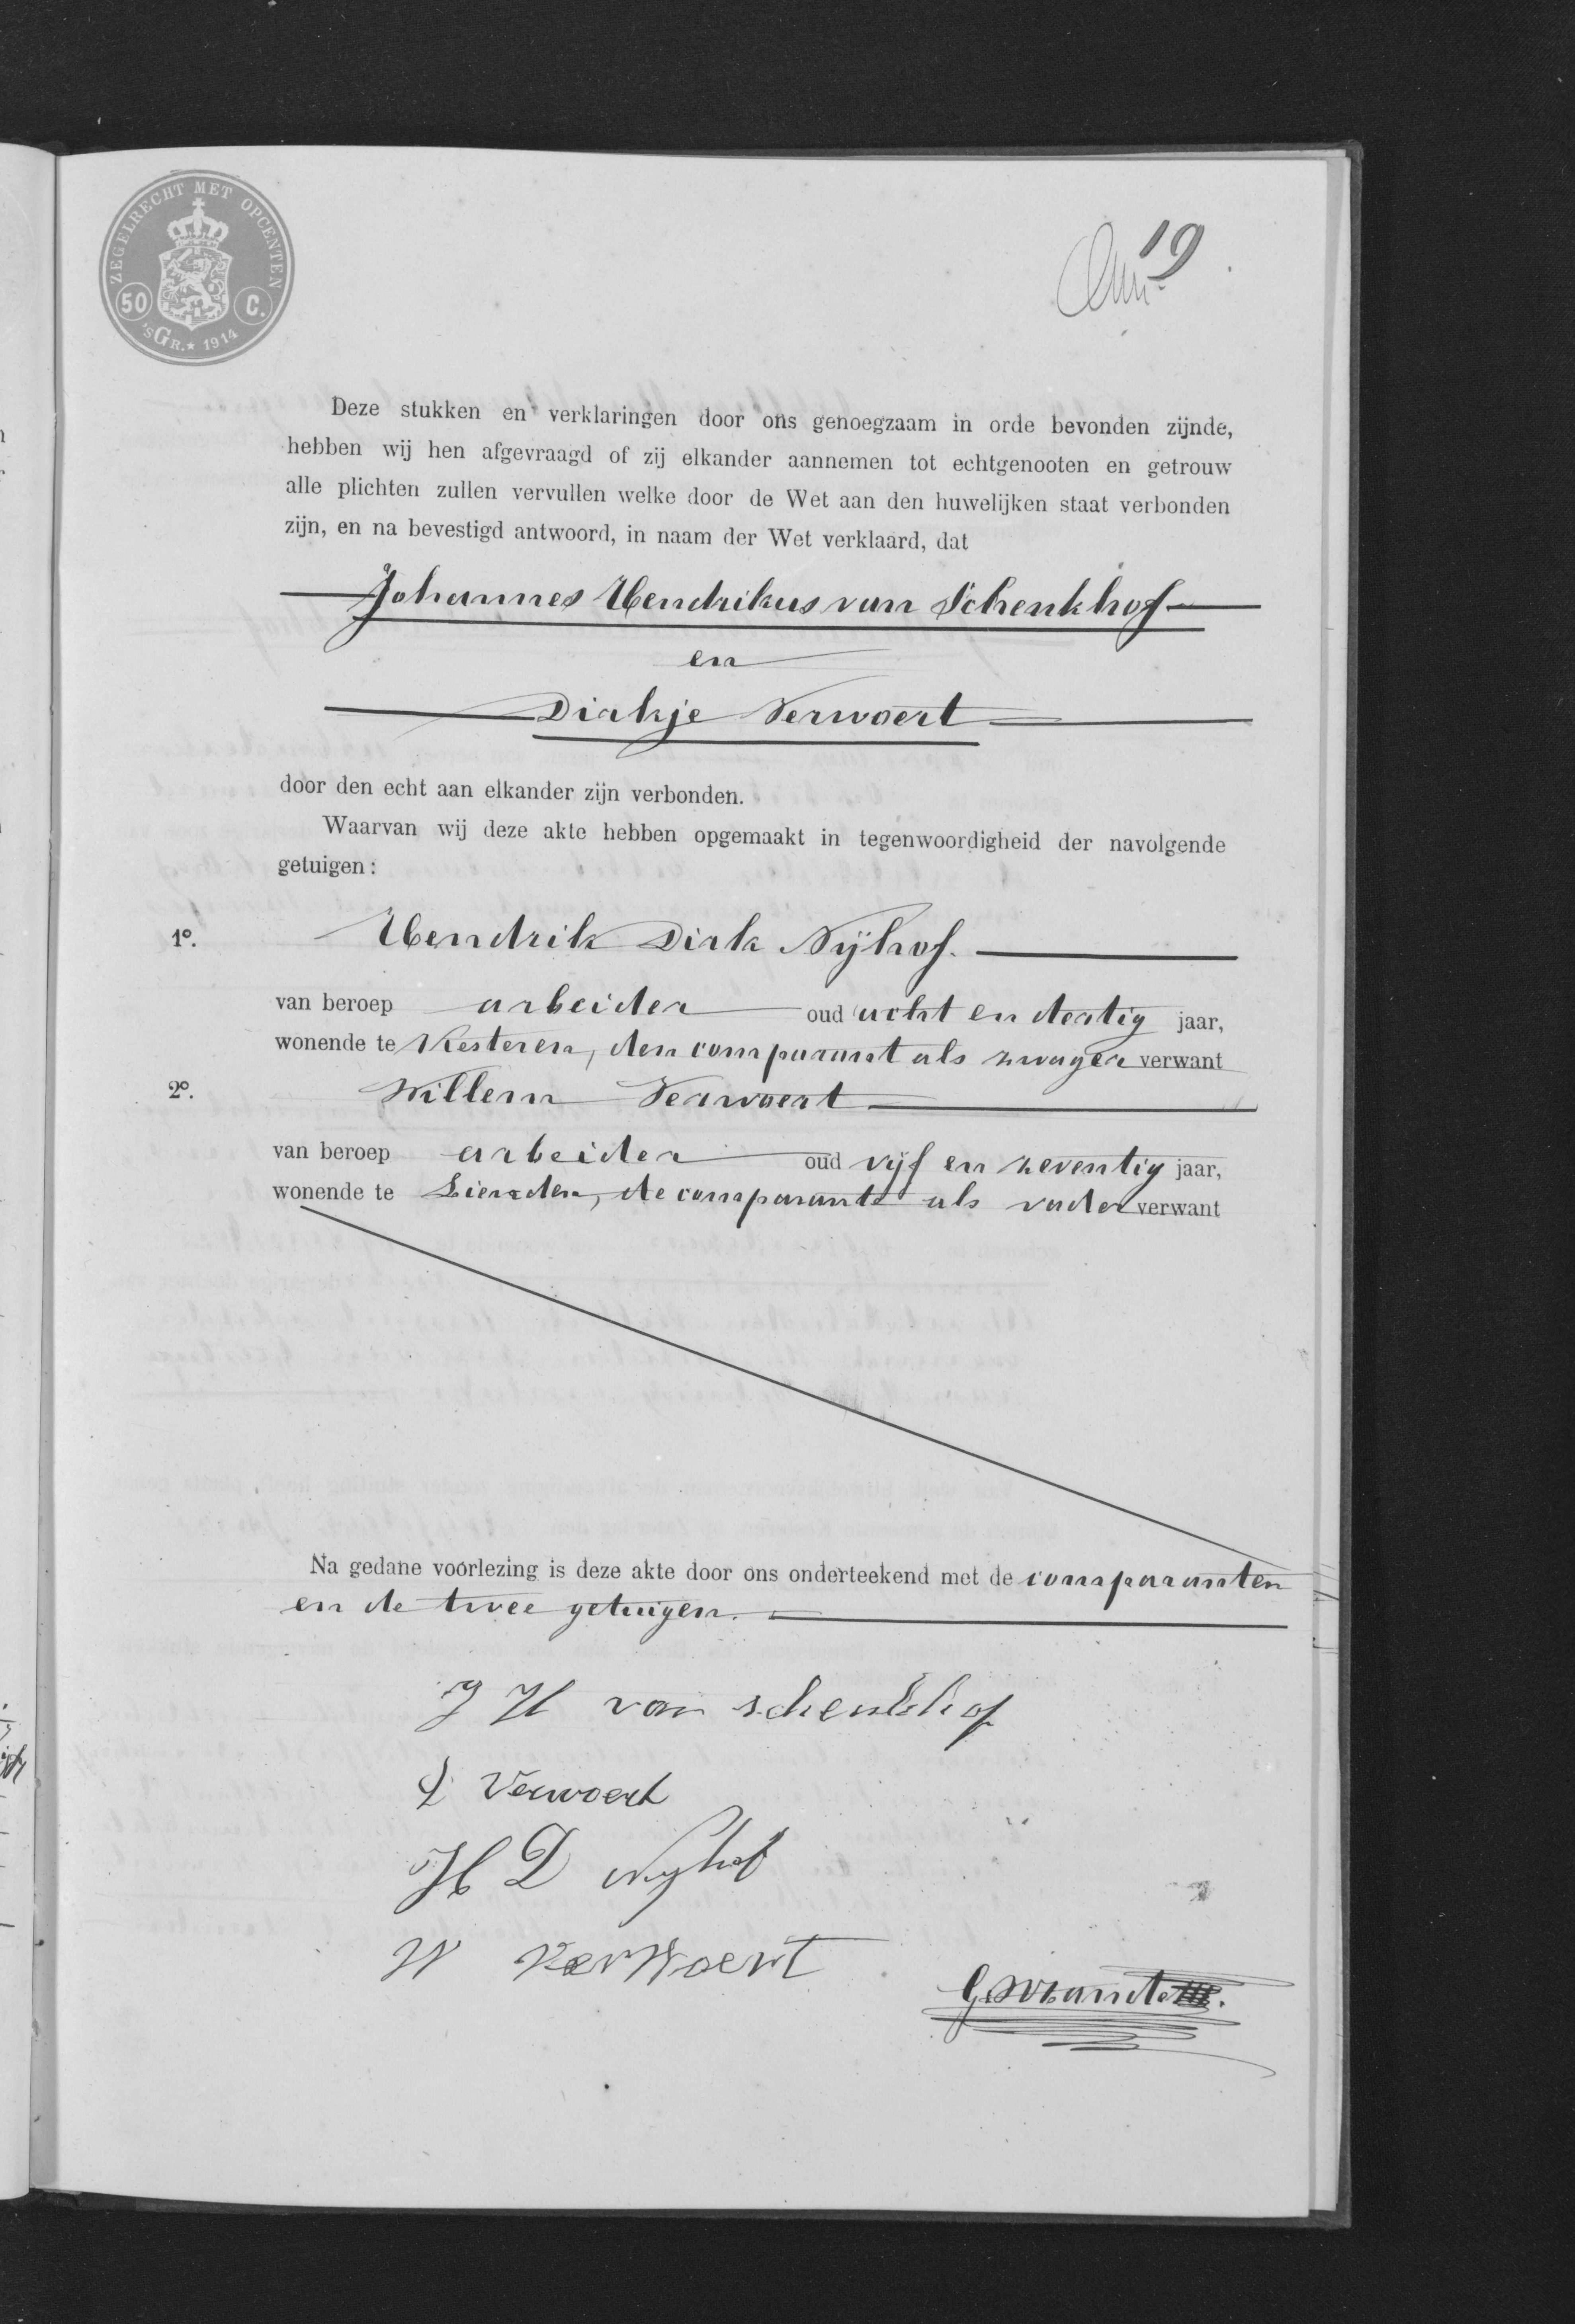 ZEGELRECHT MET OPCENTEN
50 C.
'SGR.★ 1914
19
Deze stukken en verklaringen door ons genoegzaam in orde bevonden zijnde,
hebben wij hen afgevraagd of zij elkander aannemen tot echtgenooten en getrouw
alle plichten zullen vervullen welke door de Wet aan den huwelijken staat verbonden
zijn, en na bevestigd antwoord, in naam der Wet verklaard, dat
Johannes Hendrikus van Schenkhof
en
Dirkje Verwoert
door den echt aan elkander zijn verbonden.
Waarvan wij deze akte hebben opgemaakt in tegenwoordigheid der navolgende
getuigen:
1º. Hendrik Dirk Nijhof.
van beroep arbeider oud acht en dertig jaar,
wonende te Kesteren, den comparant als zwager verwant
2º. Willem Verwoert
van beroep arbeider oud vijf en zeventig jaar,
wonende te Lienden, de comparante als vader verwant
Na gedane voorlezing is deze akte door ons onderteekend met de comparanten
en de twee getuigen.
J H van schenkhof
D Verwoert
H D Nyhof
W VerWoert